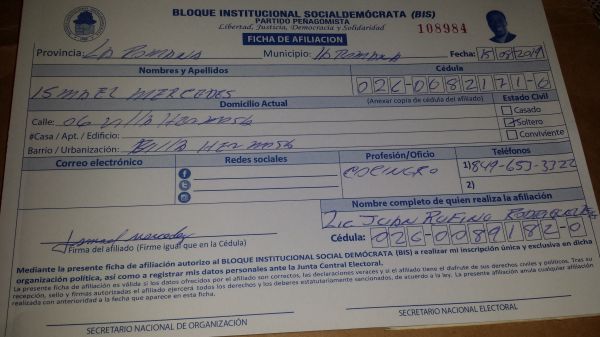 BLOQUE INSTITUCIONAL SOCIALDEMÓCRATA (BIS)
PARTIDO PEÑAGOMISTA
Libertad, Justicia, Democracia y Solidaridad
108984
FICHA DE AFILIACION
Provincia: LA ROMANA Municipio: LA ROMANA Fecha: 15/08/2019
Nombres y Apellidos Cédula
ISMAEL MERCEDES 026-0682171-6
Domicilio Actual (Anexar copia de cédula del afiliado) Estado Civil
Calle: 06 VILLA HERMOSA Casado
#Casa / Apt. / Edificio: Soltero
Barrio / Urbanización: VILLA HERMOSA Conviviente
Correo electrónico Redes sociales Profesión/Oficio Teléfonos
COCINERO 1) 849-653-3322
2)
Nombre completo de quien realiza la afiliación
Lic JUAN RUFINO RODRIGUEZ
Cédula: 026-0089182-0
Ismael Mercedes
Firma del afiliado (Firme igual que en la Cédula)
Mediante la presente ficha de afiliación autorizo al BLOQUE INSTITUCIONAL SOCIAL DEMÓCRATA (BIS) a realizar mi inscripción única y exclusiva en dicha
organización política, así como a registrar mis datos personales ante la Junta Central Electoral.
La presente ficha de afiliación es válida si los datos ofrecidos por el afiliado son correctos, las declaraciones veraces y si el afiliado tiene el disfrute de sus derechos civiles y políticos. Tras su
recepción, sello y firmas autorizadas el afiliado ejercerá todos los derechos y los deberes estatutariamente sancionados, de acuerdo a la ley. La presente afiliación anula cualquier afiliación
realizada con anterioridad a la fecha que aparece en esta ficha.
SECRETARIO NACIONAL DE ORGANIZACIÓN SECRETARIO NACIONAL ELECTORAL